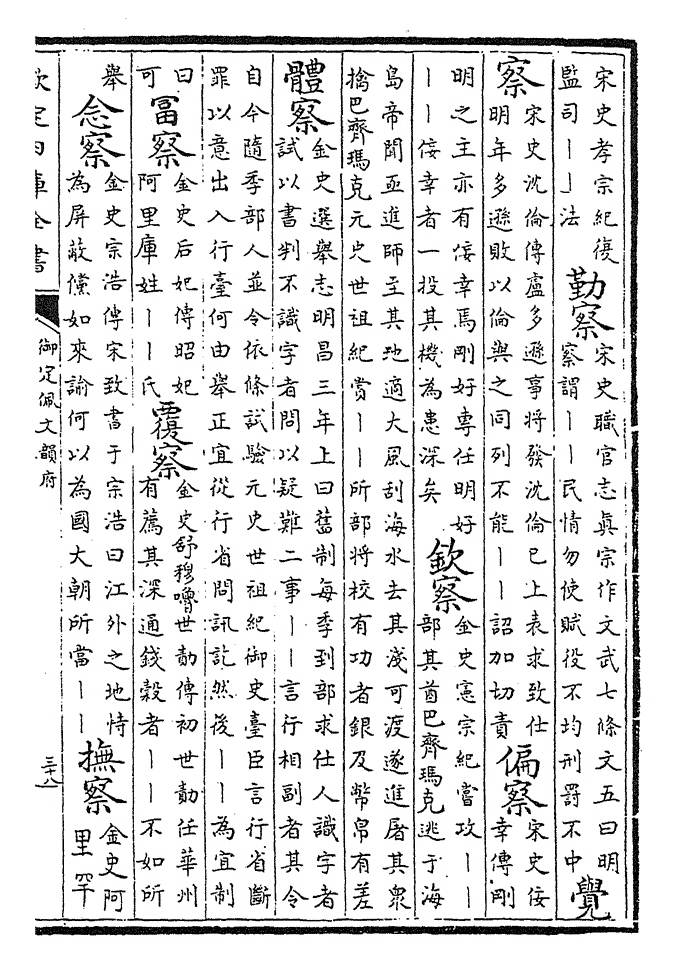 宋史孝宗紀復
監司丨丨法
勤察
宋史職官志眞宗作文武七條文五曰明
察謂丨丨民情勿使賦役不均刑罰不中
覺
察
宋史沈倫傳盧多遜事將發沈倫已上表求致仕
明年多遜敗以倫與之同列不能丨丨詔加切責
偏察
宋史佞
幸傳剛
明之主亦有佞幸焉剛好專任明好
丨丨佞幸者一投其機為患深矣
欽察
金史憲宗紀嘗攻丨丨
部其酋巴齊瑪克逃于海
島帝聞亟進師至其地適大風刮海水去其淺可渡遂進屠其衆
擒巴齊瑪克元史世祖紀賞丨丨所部將校有功者銀及幣帛有差
體察
金史選舉志明昌三年上曰舊制每季到部求仕人識字者
試以書判不識字者問以疑難二事丨丨言行相副者其令
自今隨季部人並令依條試驗元史世祖紀御史臺臣言行省斷
罪以意出入行臺何由舉正宜從行省問訊訖然後丨丨為宜制
曰
可
富察
金史后妃傳昭妃
阿里庫姓丨丨氏
覆察
金史舒穆嚕世勣傳初世勣任華州
有薦其深通錢穀者丨丨不如所
舉
念察
金史宗浩傳宋致書于宗浩曰江外之地恃
為屏蔽儻如來諭何以為國大朝所當丨丨
撫察
金史阿
里罕
欽定四庫全書
御定佩文韻府
三十八